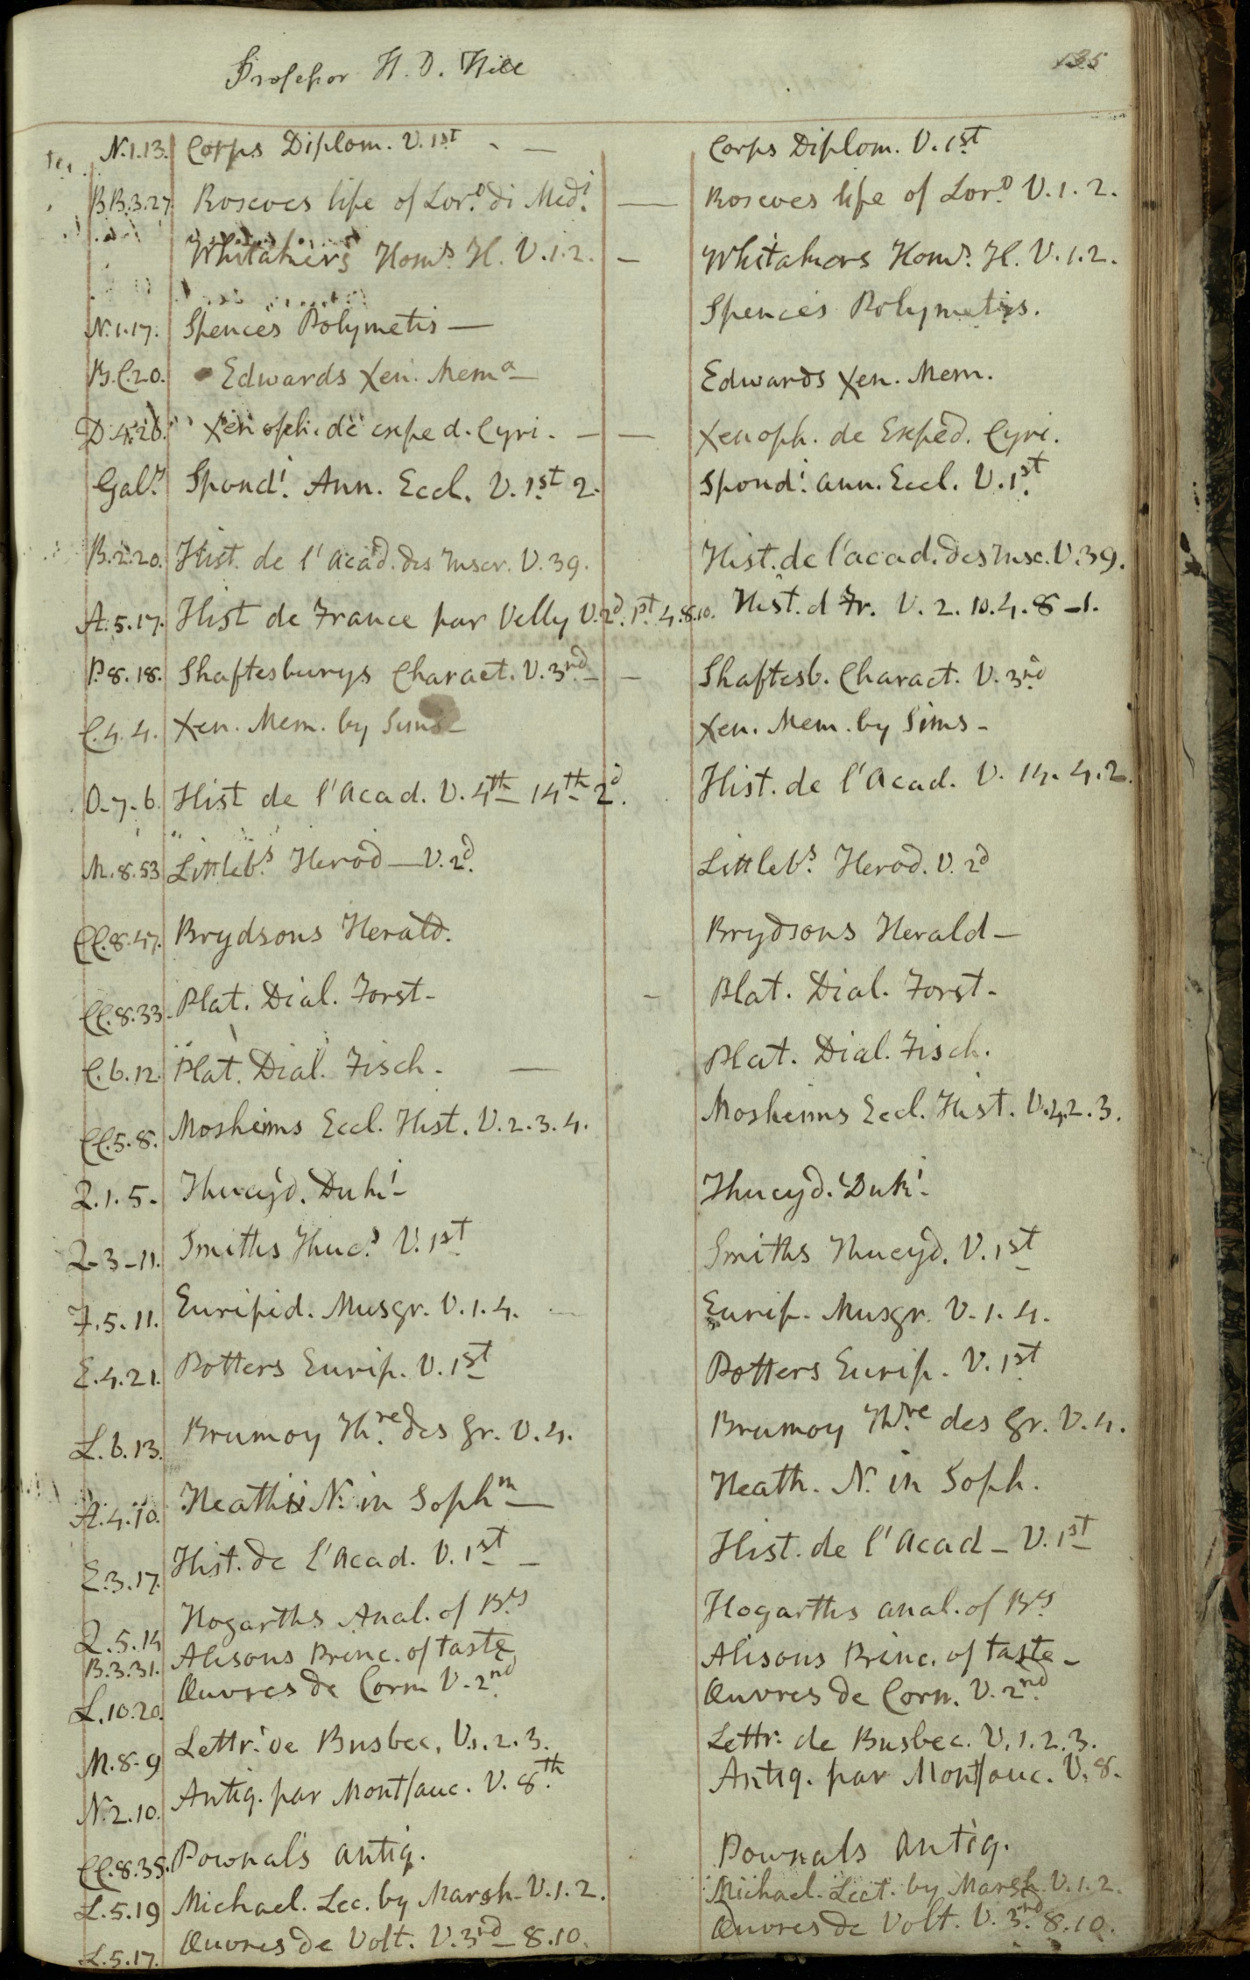 Professor H. D. Hill 135
N.1.13. Corps Diplom. V. 1st - - Corps Diplom. V. 1st
B.B.3.27 Roscoes life of Lor.o di Med.i — Roscoes life of Lor.o V. 1. 2.
Whitakers Hom.s H. V. 1. 2. - Whitakers Hom.s H. V. 1. 2.
N.1.17. Spences Polymetis — Spences Polymetis.
B.C.20. Edwards Xen. Mem.a - Edwards Xen. Mem.
D.4.26. Xenoph. de exped. Cyri. - - Xenoph. de Exped. Cyri.
Gal.y Spond.i Ann. Eccl. V. 1st 2. Spond.i ann. Eccl. V. 1st
B.2.20. Hist. de l'acad. des Inscr. V. 39. Hist. de l'acad. des Insc. V. 39.
A.5.17. Hist de France par Velly V. 2d. 1st 4. 8. 10. Hist. d Fr. V. 2. 10. 4. 8 - 1.
P.8.18. Shaftesburys Charact. V. 3rd - - Shaftesb. Charact. V. 3rd
C.4.4. Xen. Mem. by Sims - Xen. Mem. by Sims -
O.7.6. Hist de l'Acad. V. 4th - 14th 2d. Hist. de l'Acad. V. 14. 4. 2.
M.8.53 Littleb.s Herod — V. 2d. Littleb.s Herod. V. 2d
CC.8.47. Brydsons Herald. Brydsons Herald -
CC.8.33. Plat. Dial. Forst - - Plat. Dial. Forst -
C.6.12. Plat. Dial. Fisch. - — Plat. Dial. Fisch.
CC.5.8. Mosheims Eccl. Hist. V. 2. 3. 4. Mosheims Eccl. Hist. V. 4. 2. 3.
Q.1.5. Thucyd. Duk.i - Thucyd. Duk.i -
Q-3-11. Smiths Thuc.d V. 1st Smiths Thucyd. V. 1st
F.5.11. Euripid. Musgr. V. 1. 4. - Eurip. Musgr. V. 1. 4.
E.4.21. Potters Eurip. V. 1st Potters Eurip. V. 1st
L.6.13. Brumoy Th.re des Gr. V. 4. Brumoy Th.re des Gr. V. 4.
A.4.10. Heath N. in Soph.m — Heath. N. in Soph.
E.3.17. Hist. de l'Acad. V. 1st - Hist. de l'Acad - V. 1st
Q.5.14 Hogarths Anal. of B.y Hogarths anal. of B.y
B.3.31. Alisons Princ. of taste Alisons Princ. of taste -
L.10.20. Œuvres de Corn V. 2nd Œuvres de Corn. V. 2nd
M.8-9 Lettr. de Busbec. V. 1. 2. 3. Lettr. de Busbec. V. 1. 2. 3.
N.2.10. Antiq. par Montfauc. V. 8th Antiq. par Montfauc. V. 8.
CC.8.35. Pownals antiq. Pownals antiq.
L.5.19 Michael. Lec. by Marsh. V. 1. 2. Michael. Lect. by Marsh. V. 1. 2.
L.5.17. Œuvres de Volt. V. 3rd - 8. 10. Œuvres de Volt. V. 3rd 8. 10.